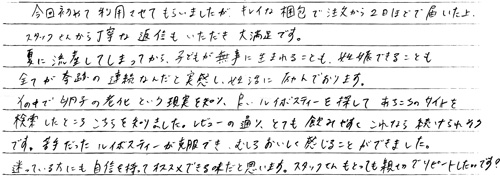 今回初めて利用させてもらいましたが、キレイな梱包で注文から2日ほどで届いた上、
スタッフさんから丁寧な返信もいただき大満足です。
夏に流産してしまってから、子どもが無事に生まれることも、妊娠できることも
全てが奇跡の連続なんだと実感し、妊活に励んでおります。
その中で卵子の老化という現実を知り、良いルイボスティーを探してあちこちのサイトを
検索したところこちらを知りました。レビューの通り、とても飲みやすくこれなら続けられそう
です。苦手だったルイボスティーが克服でき、むしろおいしく感じることができました。
迷っている方にも自信を持ってオススメできる味だと思います。スタッフさんもとっても親切でリピートしたいです。